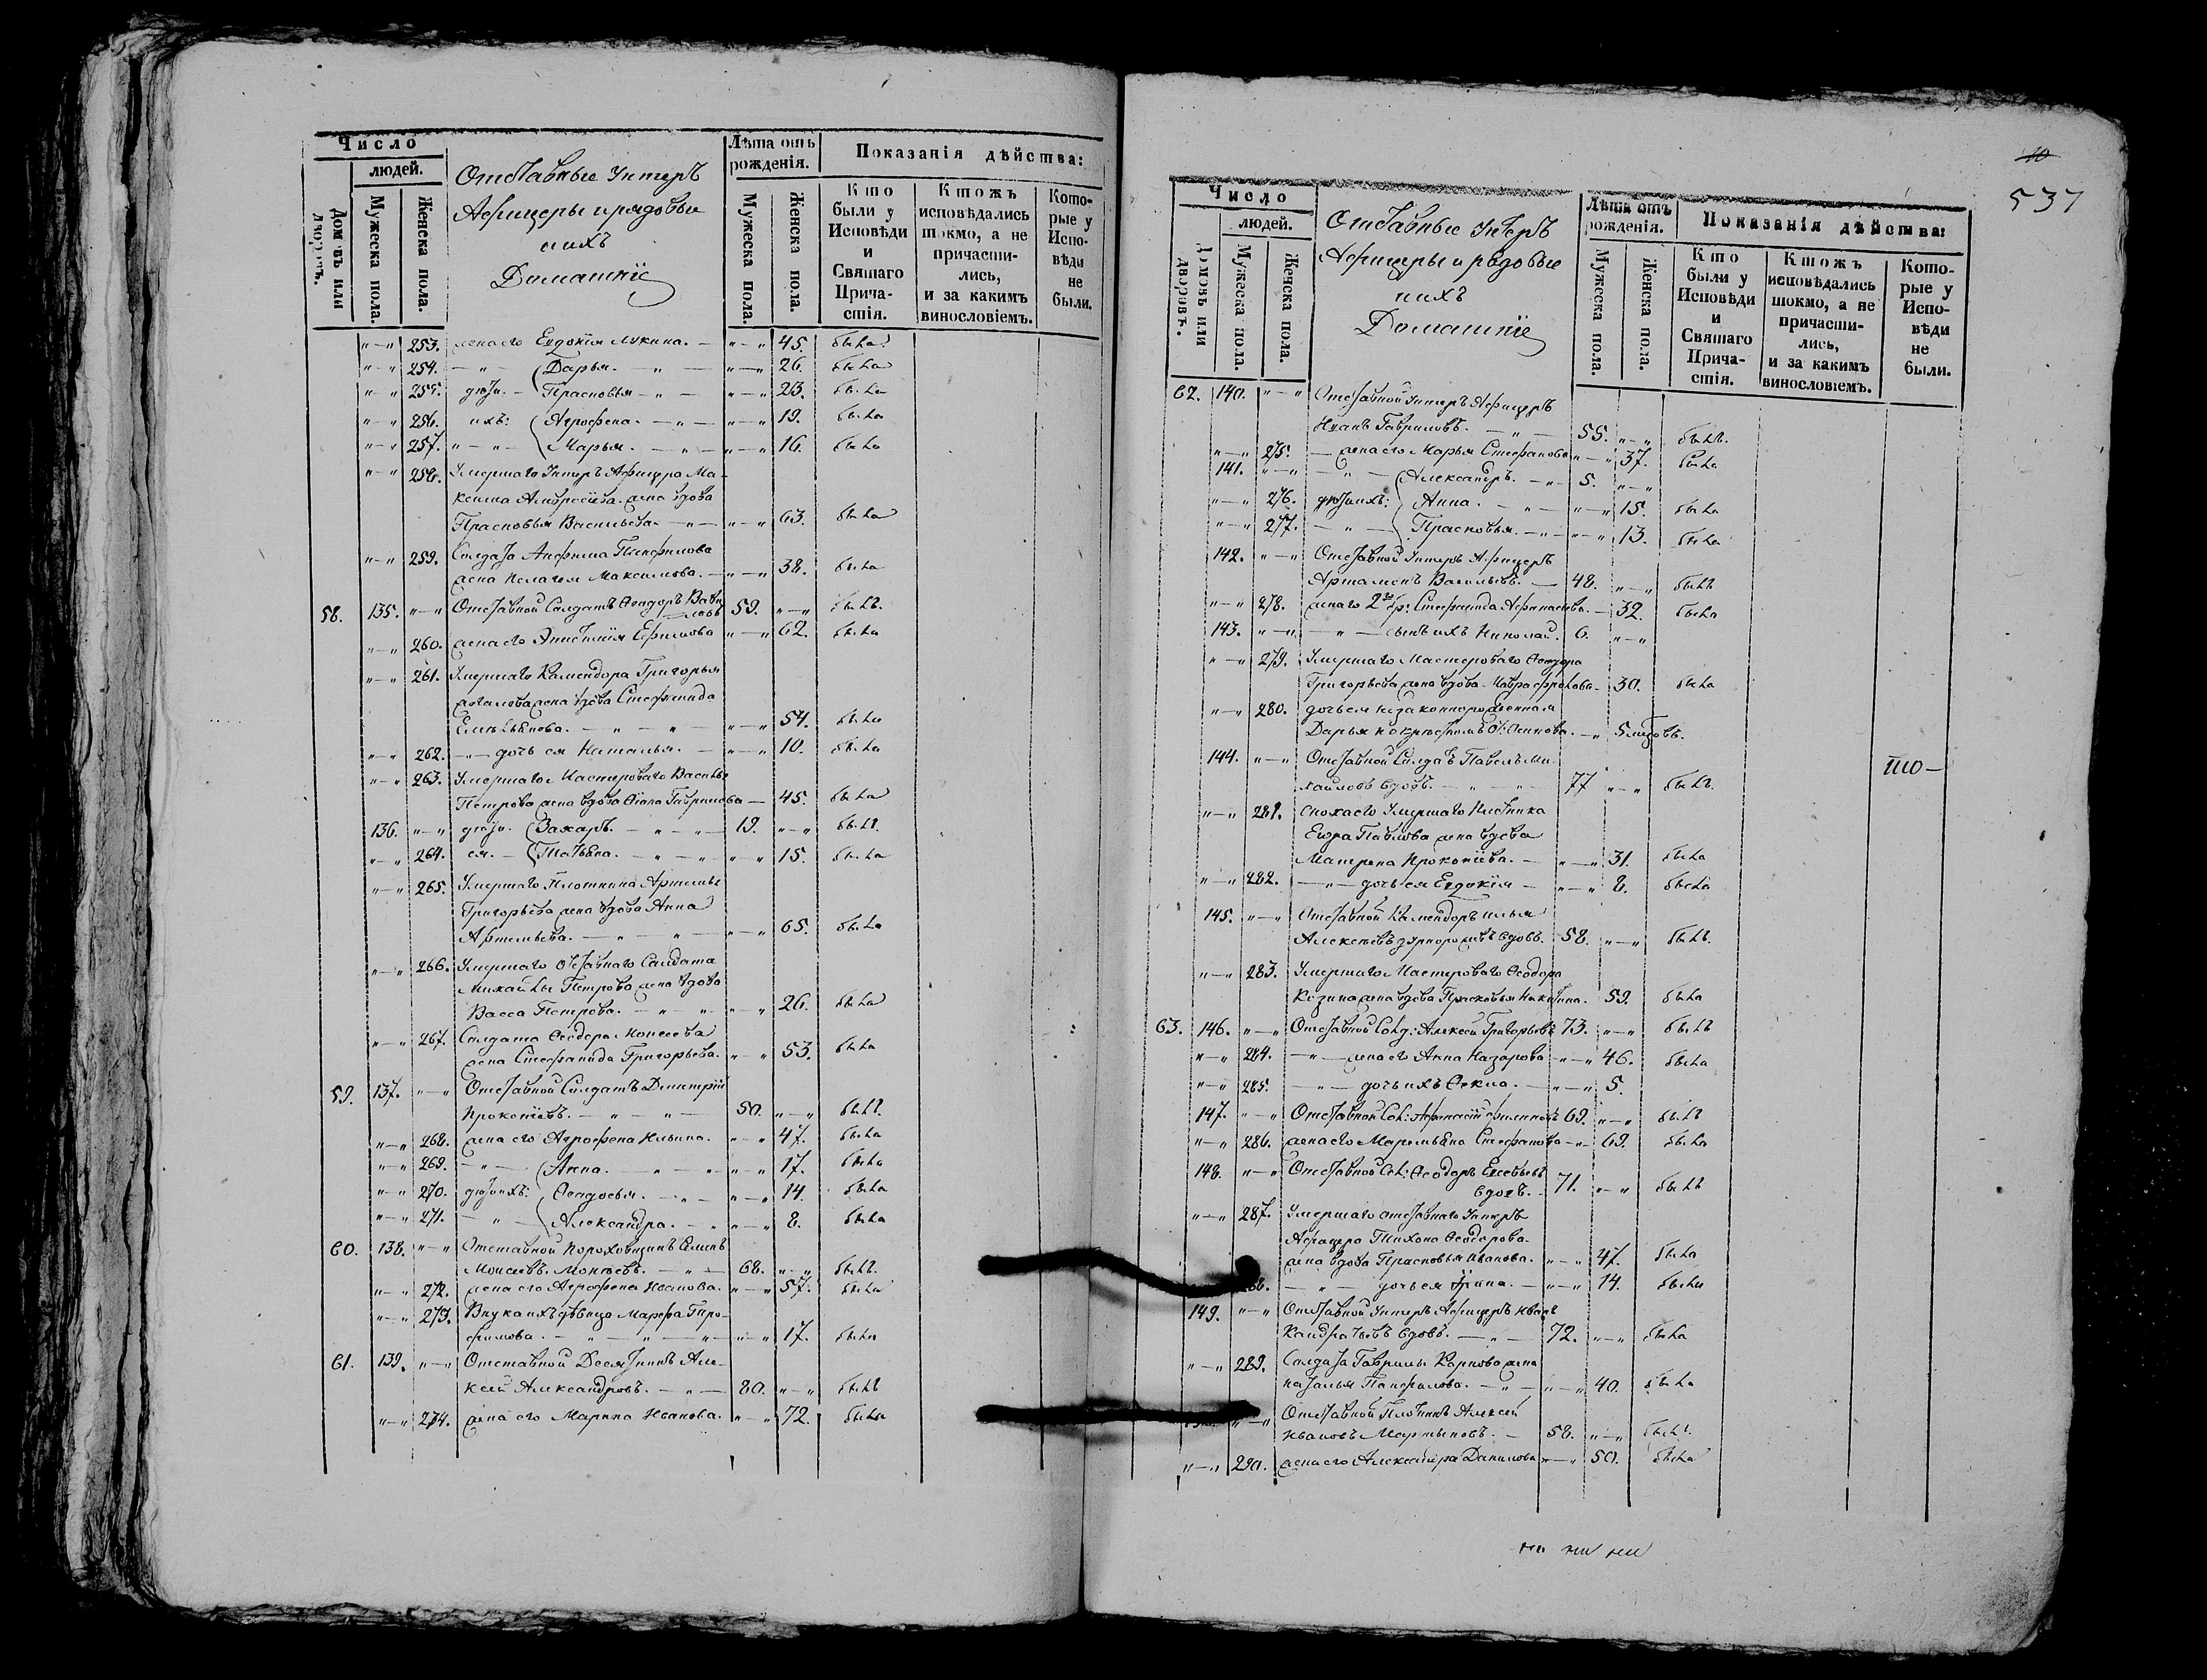 Число
людей.
Домовъ или дворовъ.
Мужеска пола.
Женска пола.
Отставные Унтеръ
Афицеры и рядовые
и ихъ
Домашніе
Лѣта отъ
рожденія.
Мужеска пола.
Женска пола.
Показанія дѣйства:
Кто
были у
Исповѣди
и
Святаго
Прича-
стія.
Ктожъ
исповѣдались
токмо, а не
причасти-
лись,
и за какимъ
винословіемъ.
Кото-
рые у
Испо-
вѣди
не
были.
"—" 253. жена его Евдокія Лукина. — "—" 45. была
"—" 254. — " — Дарья. — " — "—" 26. была
"—" 255. дѣти — Прасковья — " — "—" 23. была
"—" 256. ихъ: Агрофена. — " — "—" 19. была
"—" 257. " — " — Марья. — " — "—" 16. была
"—" 258. Умершаго Унтеръ Афицера Ма-
ксима Амвросіева жена вдова
Прасковья Васильева — " — "—" 63. была
"—" 259. Салдата Анфима Панфилова
жена Пелагея Максимова. — "—" 38. была
58. 135. "—" Отставной Салдатъ Ѳеодоръ Вави
ловъ 59. "—" былъ.
"—" 260. жена его Епистимія Ефимова "—" 62. была
"—" 261. Умершаго Камендора Григорья
жена вдова Стефанида
Емельянова. — " — " — "—" 54. была
"—" 262. —"— дочь ея Наталья. — "—" 10. была
"—" 263. Умершаго Мастероваго Василья
Петрова жена вдова Анна Гаврилова — 45. была
136. "—" дѣти Захаръ. — " — " — 19. "—" былъ.
"—" 264. ея. — Татьяна. — " — " "—" 15. была
"—" 265. Умершаго Плотника Артемья
Григорьева жена вдова Анна
Артемьева. — " — " — "—" 65. была
"—" 266. Умершаго отставнаго Салдата
Михайлы Петрова жена вдова
Васса Петрова. — " — " "—" 26. была
"—" 267. Салдата Ѳеодора Моисеева
жена Стефанида Григорьева. "—" 53. была
59. 137. "—" Отставной Салдатъ Дмитрій
Прокопіевъ. — " — " — 50. "—" былъ.
"—" 268. жена его Агрофена Ильина. "—" 47. была
"—" 269. — " — Анна. — " — " "—" 17. была
"—" 270. дѣти ихъ: Ѳеодосья. — " — "—" 14. была
"—" 271. — " — Александра. — " "—" 8. была
60. 138. "—" Отставной Пороховщикъ Семенъ
Моисеевъ. — " — 68. "—" былъ.
"—" 272. жена его Агрофена Иванова. "—" 57. была
"—" 273. Внука ихъ дѣвица Марфа Тро-
фимова. — " — " — " — "—" 17. была
61. 139. "—" Отставной Десятникъ Але-
ксѣй Александровъ. — " — 80. "—" былъ
"—" 274. жена его Марина Иванова. "—" 72. была
10
537
Число
людей.
Домовъ или дворовъ.
Мужеска пола.
Женска пола.
Отставные Унтеръ
Афицеры и рядовые
и ихъ
Домашніе
Лѣта отъ
рожденія.
Мужеска пола.
Женска пола.
Показанія дѣйства:
Кто
были у
Исповѣди
и
Святаго
Прича-
стія.
Ктожъ
исповѣдались
токмо, а не
причасти-
лись,
и за какимъ
винословіемъ.
Кото-
рые у
Испо-
вѣди
не
были.
62. 140. "—" Отставной Унтеръ Афицеръ
Иванъ Гавриловъ. — " — 55. "—" былъ.
"—" 275. — жена его Марья Стефанова "—" 37. была
141. "—" — " — Александръ. — " 5. "—"
"—" 276. дѣти ихъ: Анна. — " — "—" 15. была
"—" 277. — " — Прасковья. — " — "—" 13. была
142. "—" Отставной Унтеръ Афицеръ
Артамонъ Васильевъ. — 48. "—" былъ
"—" 278. жена его 2го бр: Стефанида Афанасьева. — 32. была
143. "—" — " — сынъ ихъ Николай. 6. "—"
"—" 279. Умершаго Мастероваго Ѳеодора
Григорьева жена вдова — 30. была
"—" 280. дочь ея незаконнорожденная
Дарья по крестномъ от: Осипова. — " 5 мѣ.
144. "—" Отставной Салдатъ Павелъ Ми-
хайловъ вдовъ. — " — " 77 "—" былъ.
"—" 281. Сноха его умершаго Плотника
Егора Павлова жена вдова
Матрена Прокопіева. — "—" 31. была
"—" 282. — " — дочь ея Евдокія — "—" 8. была
145. "—" Отставной Камендоръ Илья
Алексѣевъ вдовъ. 58. "—" былъ.
"—" 283. Умершаго Мастероваго Ѳеодора
Козина жена вдова Прасковья Никитина. 59. была
63. 146. "—" Отставной Солд: Алексѣй Григорьевъ 73. "—" былъ
"—" 284. — " — жена его Анна Назарова "—" 46. была
"—" 285. — " — дочь ихъ Ѳекла. — "—" 5.
147. "—" Отставной Сол: Афанасій Филиповъ 69. "—" былъ
"—" 286. жена его Маремьяна Стефанова — " 69. была
148. "—" Отставной Сол: Ѳеодоръ Евсевьевъ
вдовъ. 71. "—" былъ
"—" 287. Умершаго отставнаго Унтеръ
Афицера Тихона Ѳеодорова
жена вдова Прасковья Иванова. "—" 47. была
288. — " — дочь ея Ирина. — "—" 14. была
149. "—" Отставной Унтеръ Афицеръ Иванъ
Кандратьевъ вдовъ. — " — 72. "—" была
"—" 289. Салдата Гаврилы Карпова жена
Наталья Панфилова. — " — "—" 40. была
"—" Отставной Плотникъ Алексѣй
Ивановъ Мартыновъ. — 58. "—" былъ.
"—" 290. жена его Александра Данилова "—" 50. была